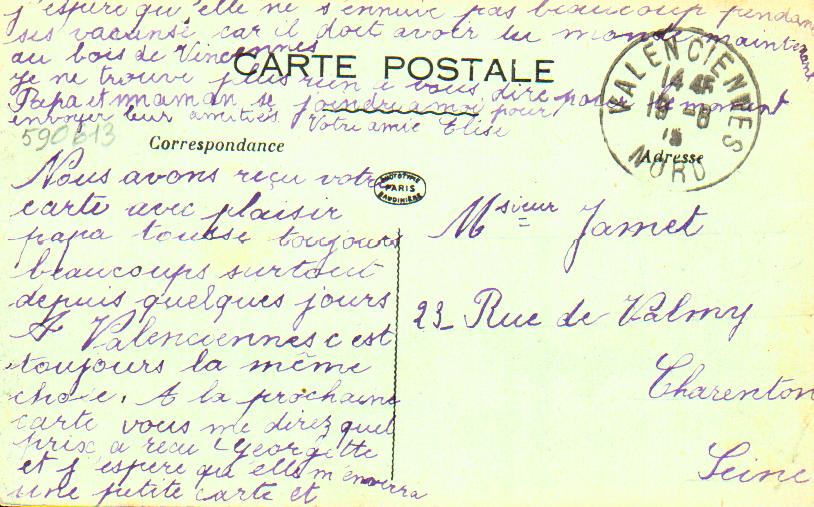 j'espere qu'elle ne s'ennuie pas beaucoup pendant
ses vacanse car il doit avoir du monde maintenant
au bois de Vincennes
CARTE POSTALE
je ne trouve plus rien a vous dire pour le moment
Papa et maman se joindre a moi pour
envoyer leur amities Votre amie Elise
590613
Correspondance
Adresse
VALENCIENNES
14 45
18 -8
15
NORD
PHOTOTYPIE
PARIS
BAUDINIÈRE
Nous avons reçu votre
carte avec plaisir
papa tousse toujours
beaucoups surtout
depuis quelques jours
A Valenciennes c est
toujours la même
chose. A la prochaine
carte vous me direz quel
prix a recu Georgette
et j'espere qu'elle m'enverra
une petite carte et
Msieur Jamet
23 Rue de Valmy
Charenton
Seine